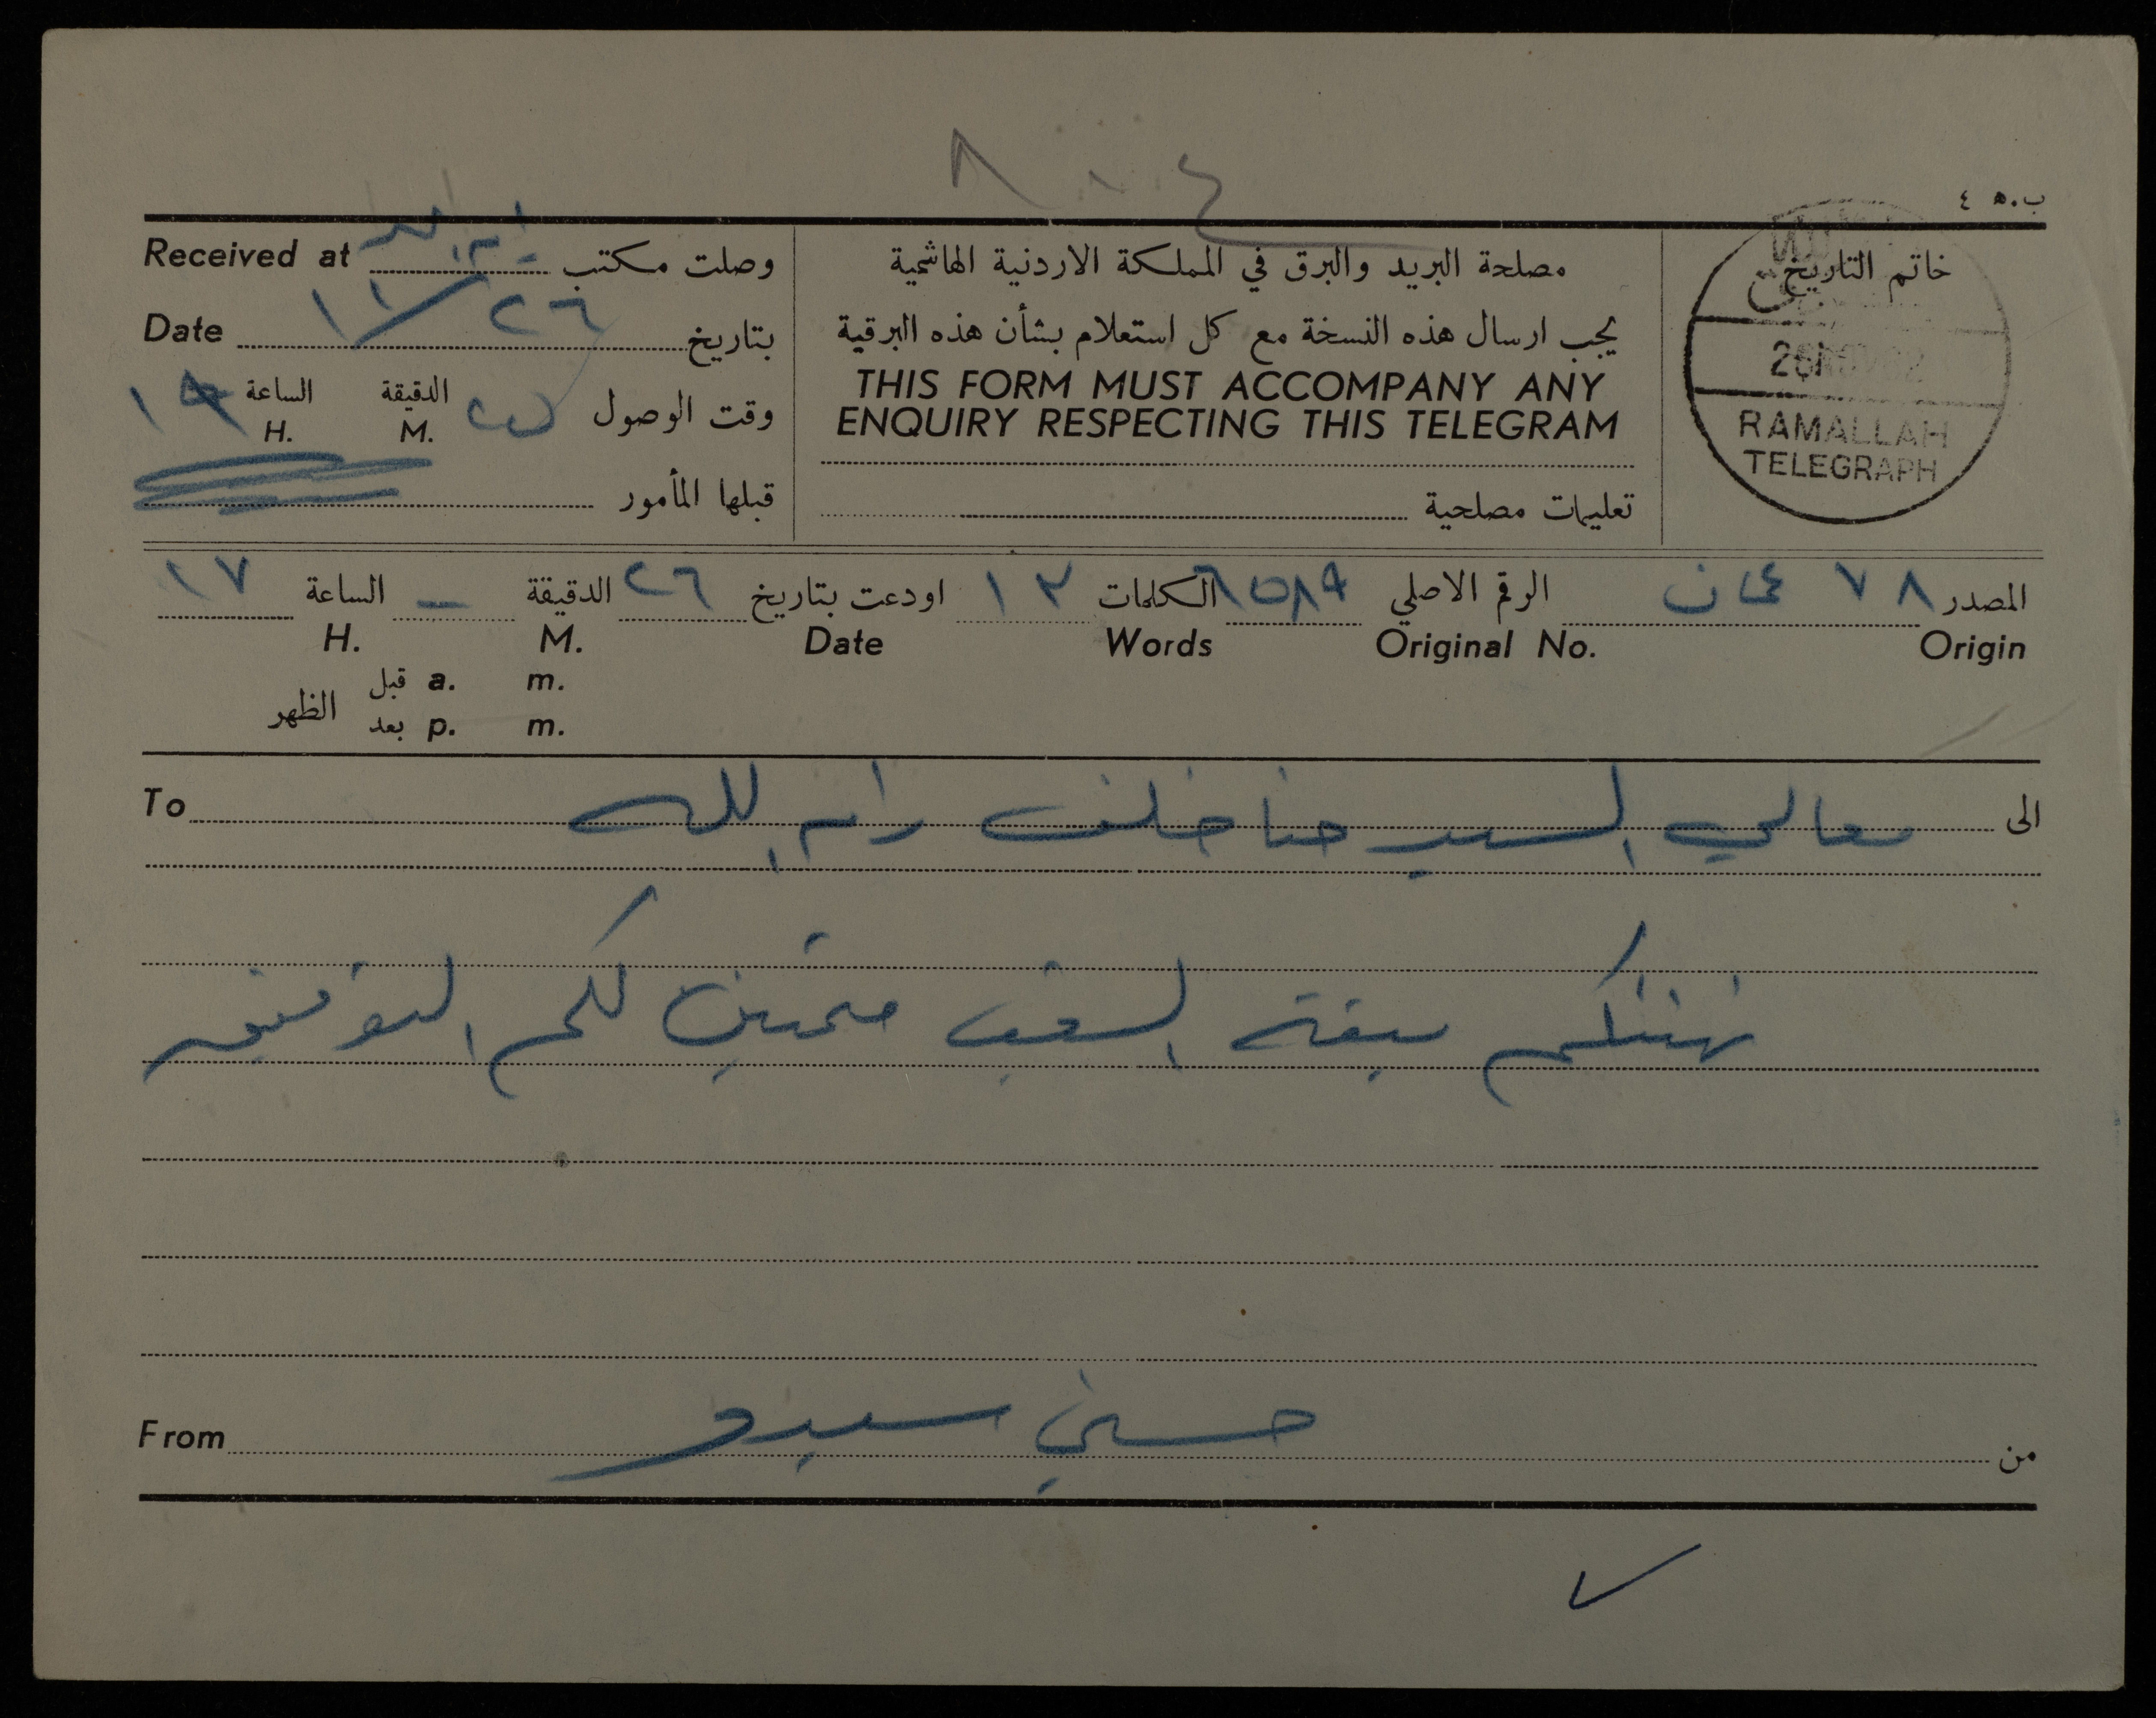 ٨٠٤
ب.ه ٤
Received at رام الله وصلت مكتب
Date ٢٦/١١ بتاريخ
وقت الوصول الدقيقة الساعة
H. M.
قبلها المأمور
مصلحة البريد والبرق في المملكة الاردنية الهاشمية
يجب ارسال هذه النسخة مع كل استعلام بشأن هذه البرقية
THIS FORM MUST ACCOMPANY ANY
ENQUIRY RESPECTING THIS TELEGRAM
تعليمات مصلحية
خاتم التاريخ
26 NOV 62
RAMALLAH
TELEGRAPH
المصدر ٧٨ عمان الرقم الاصلي ٦٥٨٩ الكلمات ١٣ اودعت بتاريخ ٢٦ الدقيقة – الساعة ١٧
H. M. Date Words Original No. Origin
قبل a. m.
الظهر
بعد p. m.
To الى معالي السيد حنا خلف رام الله
نهنئكم بثقة الشعب متمنين لكم التوفيق
From من حسني سيدو